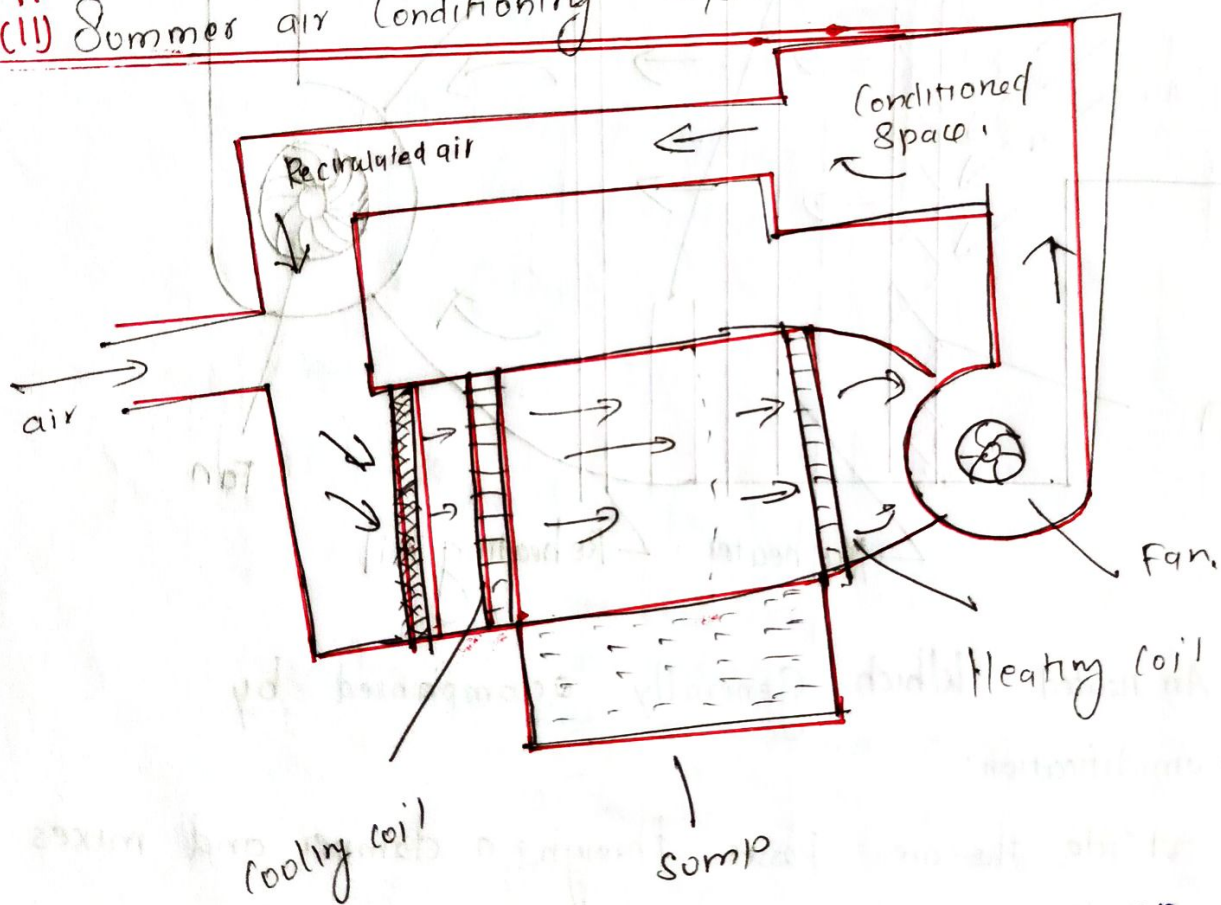 (ii) Summer air Conditioning
Conditioned
Space.
Recirculated air
air
Fan.
Heating coil
Cooling coil
Sump